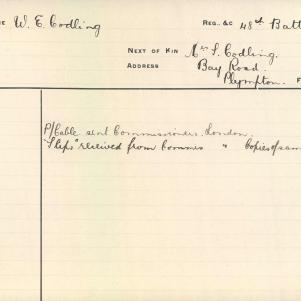 W. E. Codling REG. &C 48th Batt
NEXT OF KIN Mr S. Codling.
ADDRESS Bay Road.
Plympton.
P/Cable sent Commissioner London.
"Slips" received from Commrs " Copies of sam